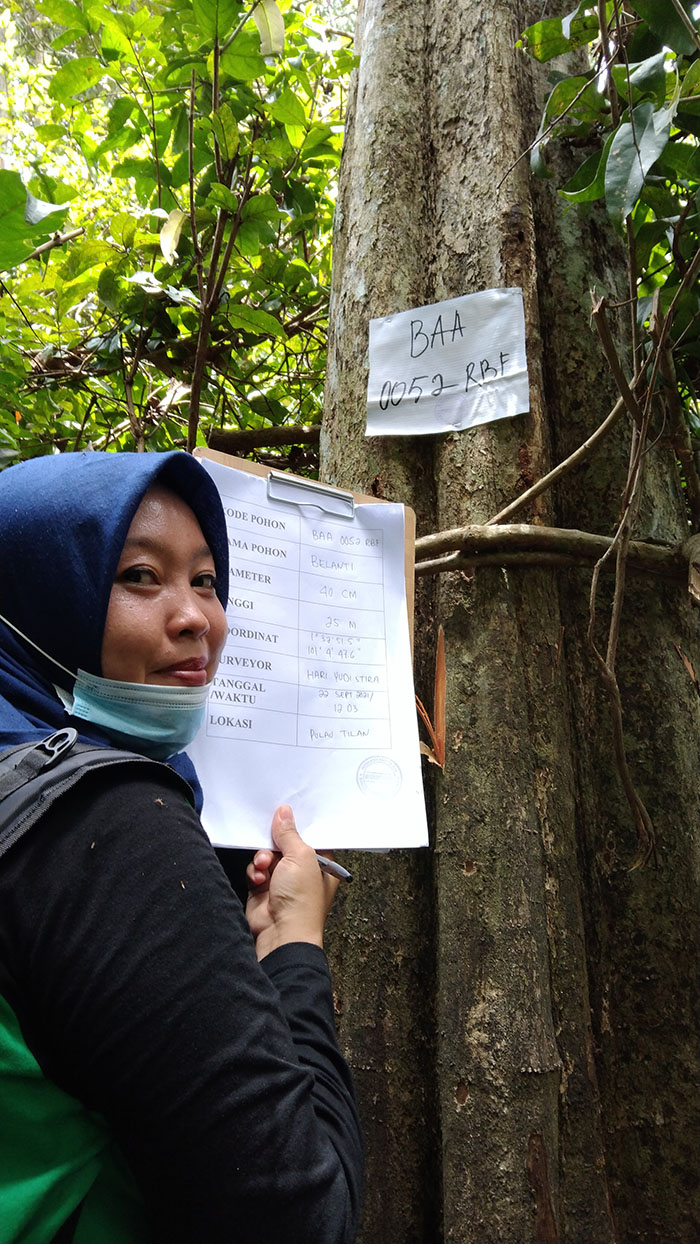 BAA
0052 RBF
KODE POHON BAA 0052 RBF
NAMA POHON BELANTI
DIAMETER 40 CM
TINGGI 25 M
KOORDINAT 1° 32' 51.5"
101° 4' 47.6"
SURVEYOR HARI YUDISTIRA
TANGGAL 22 SEPT 2021/
/WAKTU 12.03
LOKASI PULAU TILAN